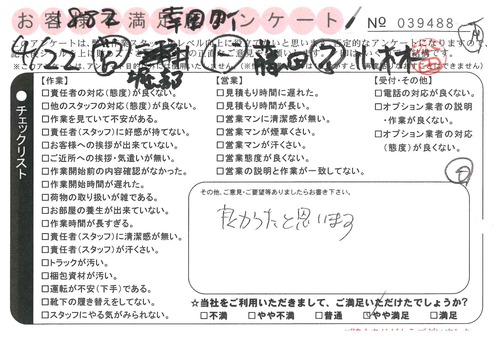 お客様満足度アンケート!
No 039488
【作業】
□責任者の対応(態度)が良くない。
□他のスタッフの対応(態度)が良くない。
□作業を見ていて不安がある。
□責任者(スタッフ)に好感が持てない。
□お客様への挨拶が出来ていない。
□ご近所への挨拶・気遣いが無い。
□作業開始前の内容確認がなかった。
□作業開始時間が遅れた。
□荷物の取り扱いが雑である。
□お部屋の養生が出来ていない。
□作業時間が長すぎる。
□責任者(スタッフ)に清潔感が無い。
□責任者(スタッフ)が汗くさい。
□トラックが汚い。
□梱包資材が汚い。
□運転が不安(下手)である。
□靴下の履き替えをしてない。
□スタッフにやる気がみられない。
【営業】
□見積もり時間に遅れた。
□見積もり時間が長い。
□営業マンに清潔感が無い。
□営業マンが煙草くさい。
□営業マンが汗くさい。
□営業態度が良くない。
□営業の説明と作業が一致してない。
【受付・その他】
□電話の対応が良くない。
□オプション業者の説明
・作業が良くない。
□オプション業者の対応
(態度)が良くない。
チェックリスト
その他、ご意見・ご要望等ありましたらお書き下さい。
良かったと思います
☆当社をご利用いただきまして、ご満足いただけたでしょうか?
□不満 □やや不満 □普通 □やや満足 □満足